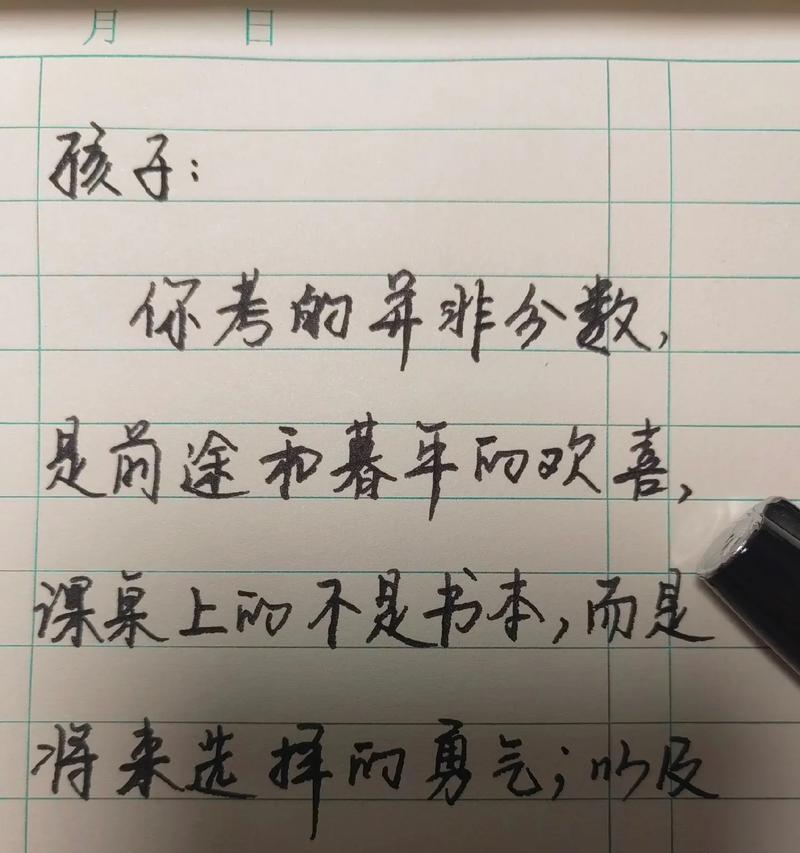 月 日
孩子：
你考的并非分数，
是前途和暮年的欢喜，
课桌上的不是书本，而是
将来选择的勇气；以及